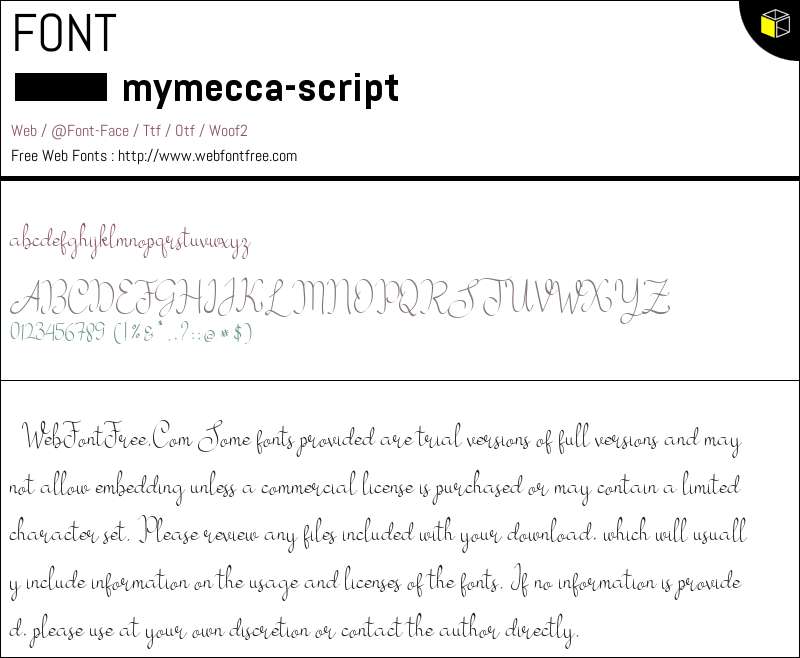 FONT
mymecca-script
Web / @Font-Face / Ttf / Otf / Woof2
Free Web Fonts : http://www.webfontfree.com
abcdefghyklmnopqrstuvwxyz
ABCDEFGHIJKLMNOPQRSTUVWXYZ
0123456789 (|%&*..?::@*$)
WebFontFree.Com Some fonts provided are trial versions of full versions and may
not allow embedding unless a commercial license is purchased or may contain a limited
character set. Please review any files included with your download. which will usuall
y include information on the usage and licenses of the fonts. If no information is provide
d. please use at your own discretion or contact the author directly.